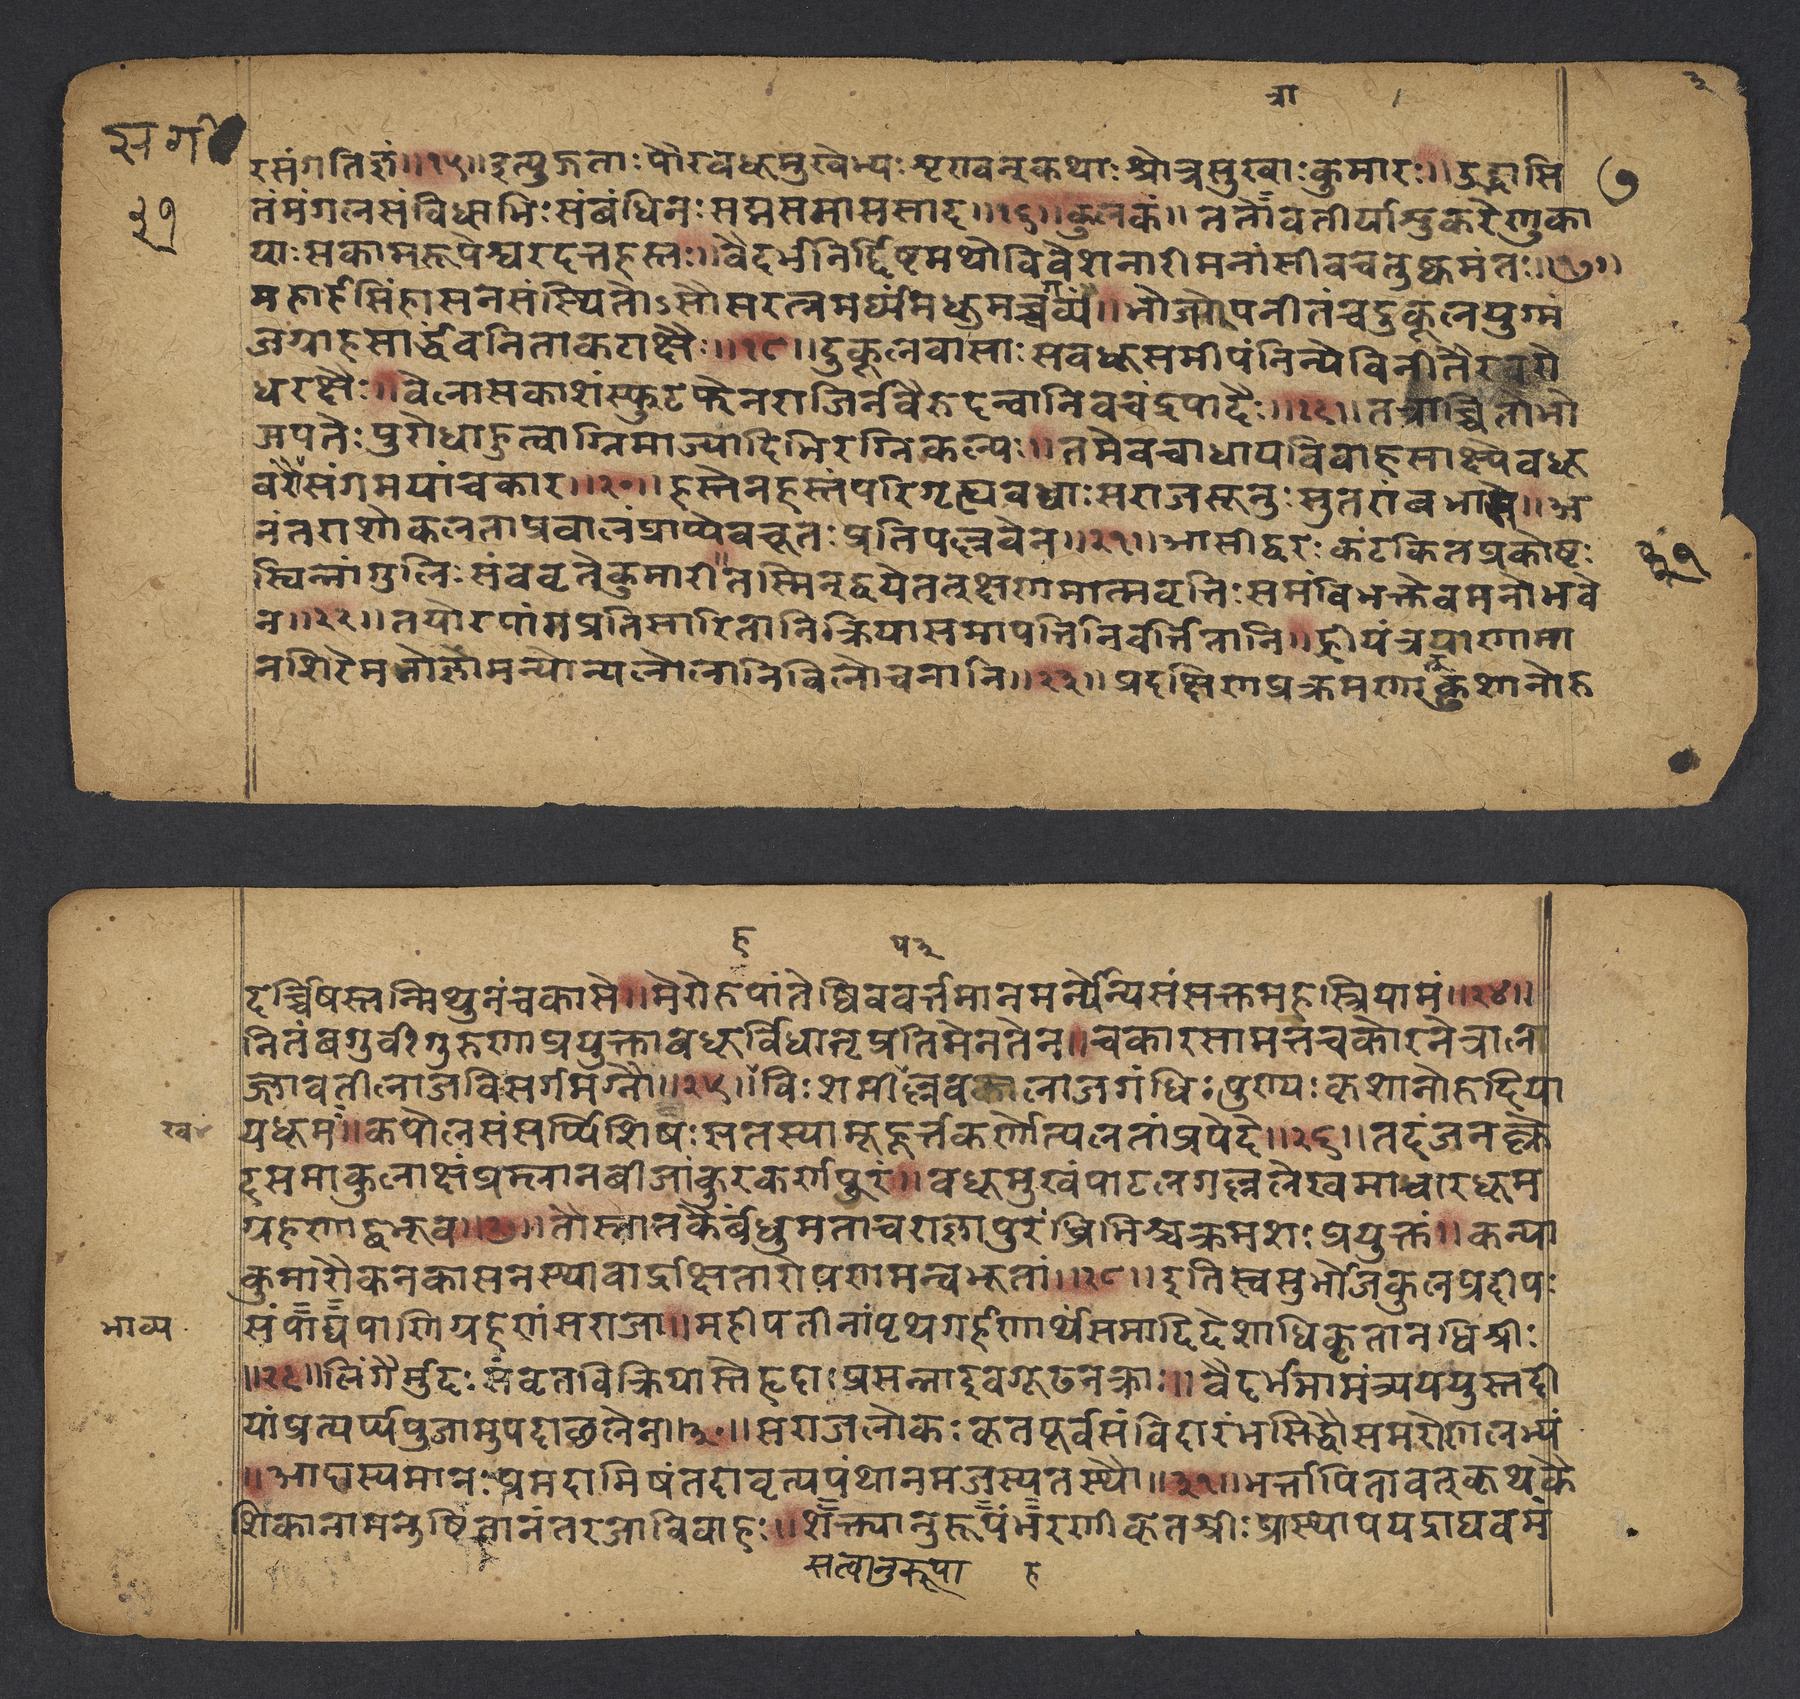 त्रा
सर्ग
२१
७
रसंगतिज्ञं॥१५॥इत्युद्गताः पौरवधूमुखेभ्यः शृण्वन्कथाः श्रोत्रसुखाः कुमारः॥उद्भासि
तंमंगलसंविधाभिः संबंधिनः सद्मसमाससाद॥१६॥कुलकं॥ततोवतीर्याशुकरेणुका
याः सकामरूपेश्वरदत्तहस्तः॥वैदर्भनिर्द्दिष्टमथोविवेशनारीमनांसीवचतुष्कमंतः॥१७॥
महार्हसिंहासनसंस्थितोऽसौसरत्नमर्घ्यंमधुमच्चगव्यं॥भोजोपनीतंचदुकूलयुग्मं
जग्राहसार्द्धंवनिताकटाक्षैः॥१८॥दुकूलवासाः सवधूसमीपंनिन्येविनीतैरवरो
धरक्षैः॥वेलासकाशंस्फुटफेनराजिर्नवैरुदन्वानिवचंद्रपादैः॥१९॥तत्रार्च्चितोभो
जपतेः पुरोधाहुत्वाग्निमाज्यादिभिरग्निकल्पः॥तमेवचाधायविवाहसाक्ष्येवधू
वरौसंगमयांचकार॥२०॥हस्तेनहस्तंपरिगृह्यवध्वाः सराजसूनुः सुतरांबभासे॥अ
नंतराशोकलताप्रवालंप्राप्येवचूतः प्रतिपल्लवेन॥२१॥आसीद्वरः कंटकितप्रकोष्टः
स्विन्नांगुलिः संववृतेकुमारी॥तस्मिन्द्वयेतत्क्षणमात्मवृत्तिः समंविभक्तेवमनोभवे
न॥२२॥तयोरपांगप्रतिसारितानिक्रियासमापत्तिनिवर्त्तितानि॥ह्रीयंत्रणामा
नशिरेमनोज्ञामन्योन्यलोलानिविलोचनानि॥२३॥प्रदक्षिणप्रक्रमणात्कृशानोरु
ह
दर्च्चिषस्तन्मिथुनंचकासे॥मेरोरुपांतेष्विववर्त्तमानमन्योन्यसंसक्तमहस्त्रियामं॥२४॥
नितंबगुर्वीगुरुणाप्रयुक्तावधूर्विधातृप्रतिमेनतेन॥चकारसामत्तचकोरनेत्राल
ज्जावतीलाजविसर्गमग्नौ॥२५॥हविः शमीपल्लवलाजगंधिः पुण्यः कृशानोरुदिया
यधूमः॥कपोलसंसर्प्पिशिषः सतस्यामुहूर्त्तकर्णोत्पलतांप्रपेदे॥२६॥तदंजनक्ले
दसमाकुलाक्षंप्रम्लानबीजांकुरकर्णपुरं॥वधूमुखंपाटलगल्ललेखमाचारधूम
ग्रहणाद्बभूव॥२७॥तौस्नातकैर्बंधुमताचराज्ञापुरंध्रिभिश्चक्रमशः प्रयुक्तं॥कन्या
कुमारौकनकासनस्थावार्द्राक्षितारोपणमन्वभूतां॥२८॥इतिस्वसुर्भोजकुलप्रदीपः
संपाद्यपाणिग्रहणंसराजा॥महीपतीनांपृथगर्हणार्थंसमादिदेशाधिकृतानधिश्रीः
॥२९॥लिंगैर्मुदः संवृतविक्रियास्तेहृदाः प्रसन्नाइवगूढनक्राः॥वैदर्भमामंत्र्यययुस्तदी
यांप्रत्यर्प्यपुजामुपदाछलेन॥३०॥सराजलोकः कृतपूर्वसंविदारंभसिद्धौसमरोपलभ्यं
॥आदास्यमानः प्रमदामिषंतदावृत्यपंथानमजस्यतस्थौ॥३१॥भर्त्तापितावत्क्रथकै
शिकानामनुष्ठितानंतरजाविवाहः॥शक्त्यानुरूपंभरणीकृतश्रीः प्रास्थापयद्राघवम
सत्वानुरूपा ह